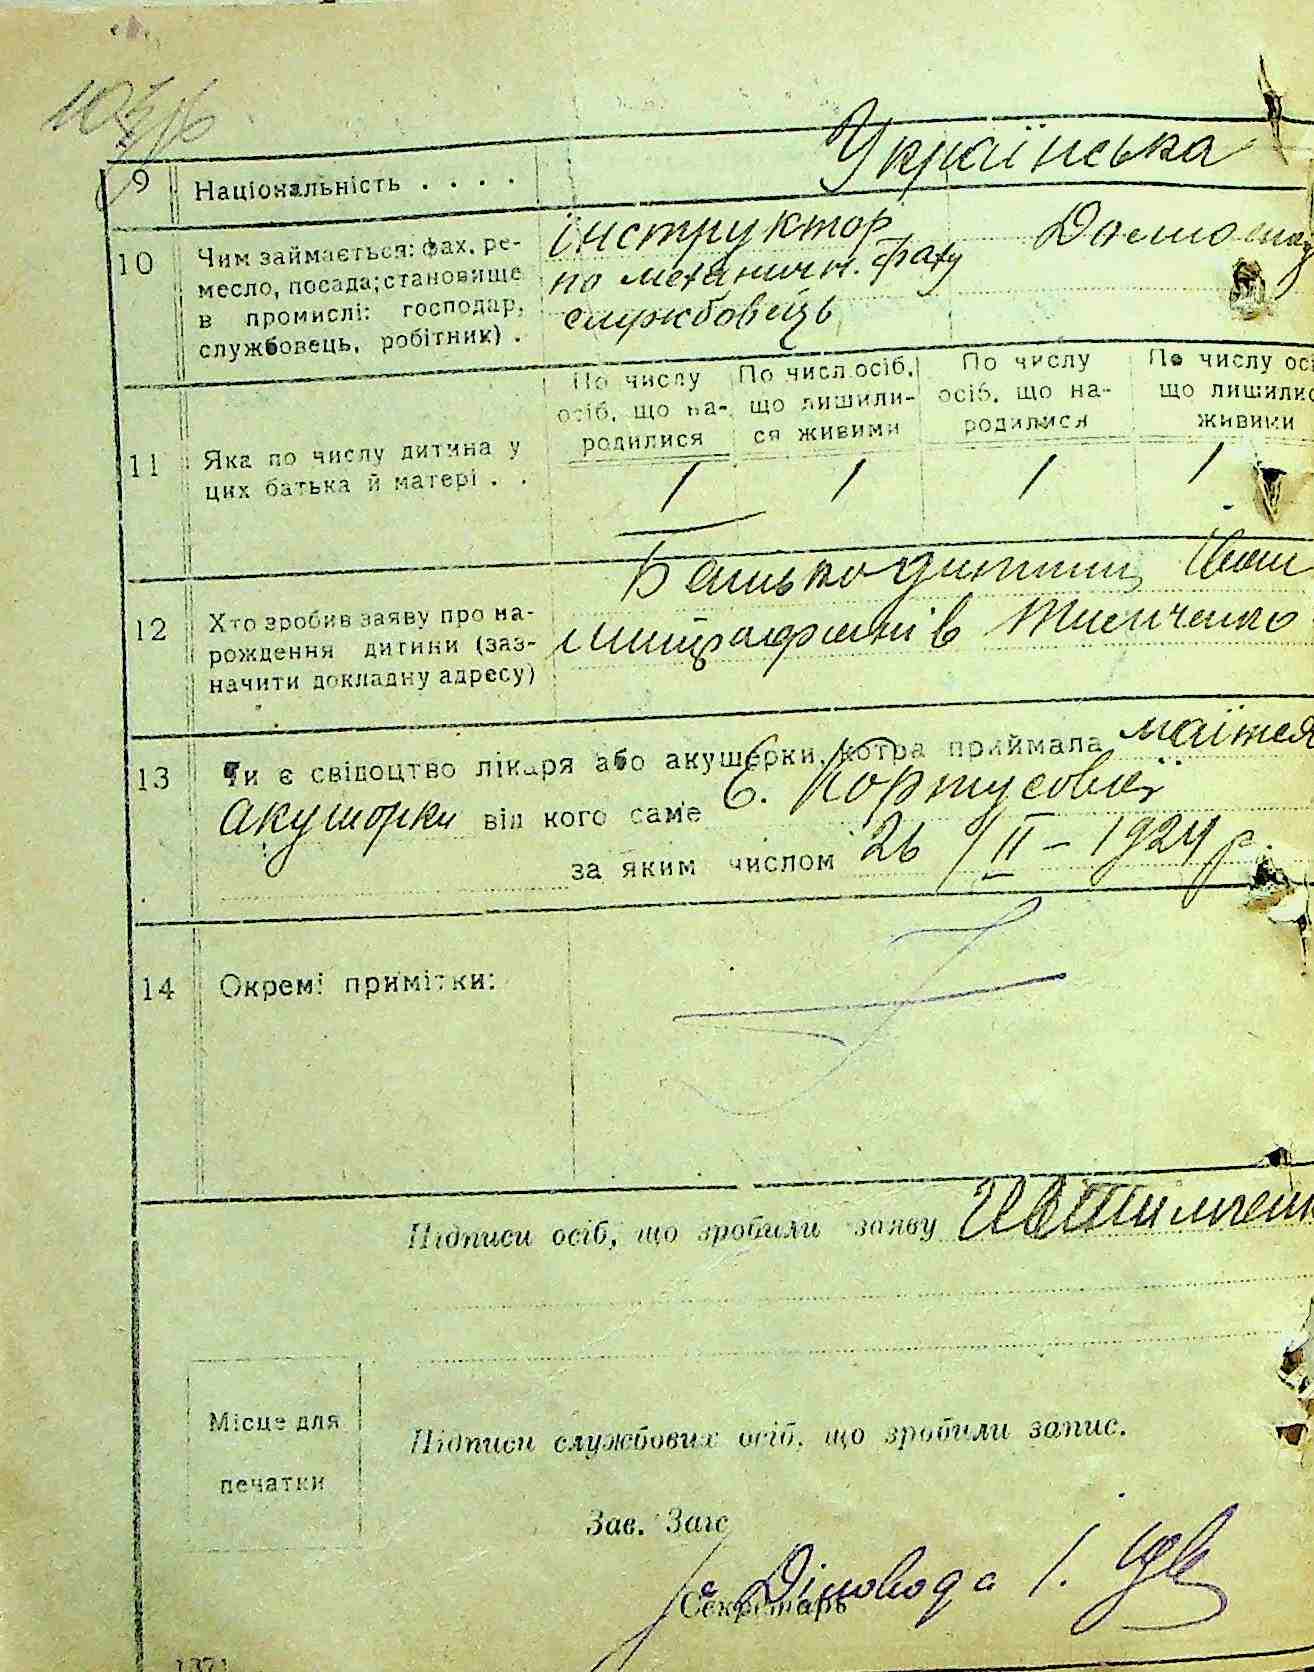 9 Національність . . . . Українська
10 Чим займається: фах, ре-
месло, посада; становище
в промислі: господар,
службовець, робітник) .
інструктор
по механичн. фаху
службовець
11 Яка по числу дитина у
цих батька й матері . .
По числу осіб, що на-родилися
По числ осіб, що лишили-ся живими
По числу осіб, що на-родилися
По числу осі що лишилис живими
1 1 1 1
12 Хто зробив заяву про на-
рождення дитини (заз-
начити докладну адресу)
Батько дитини Іван
Митрофанів Тимченко
13 Чи є свідоцтво лікаря або акушерки, котра приймала маїтся
акушорки від кого саме Є. Кортусової
за яким числом 26/II – 1924 р.
14 Окремі примітки:
Підписи осіб, що зробили заяву ИвТимченк
Місце для
печатки
Підписи службових осіб, що зробили запис.
Зав. Загс
Секретарь
Діловода І.
1371